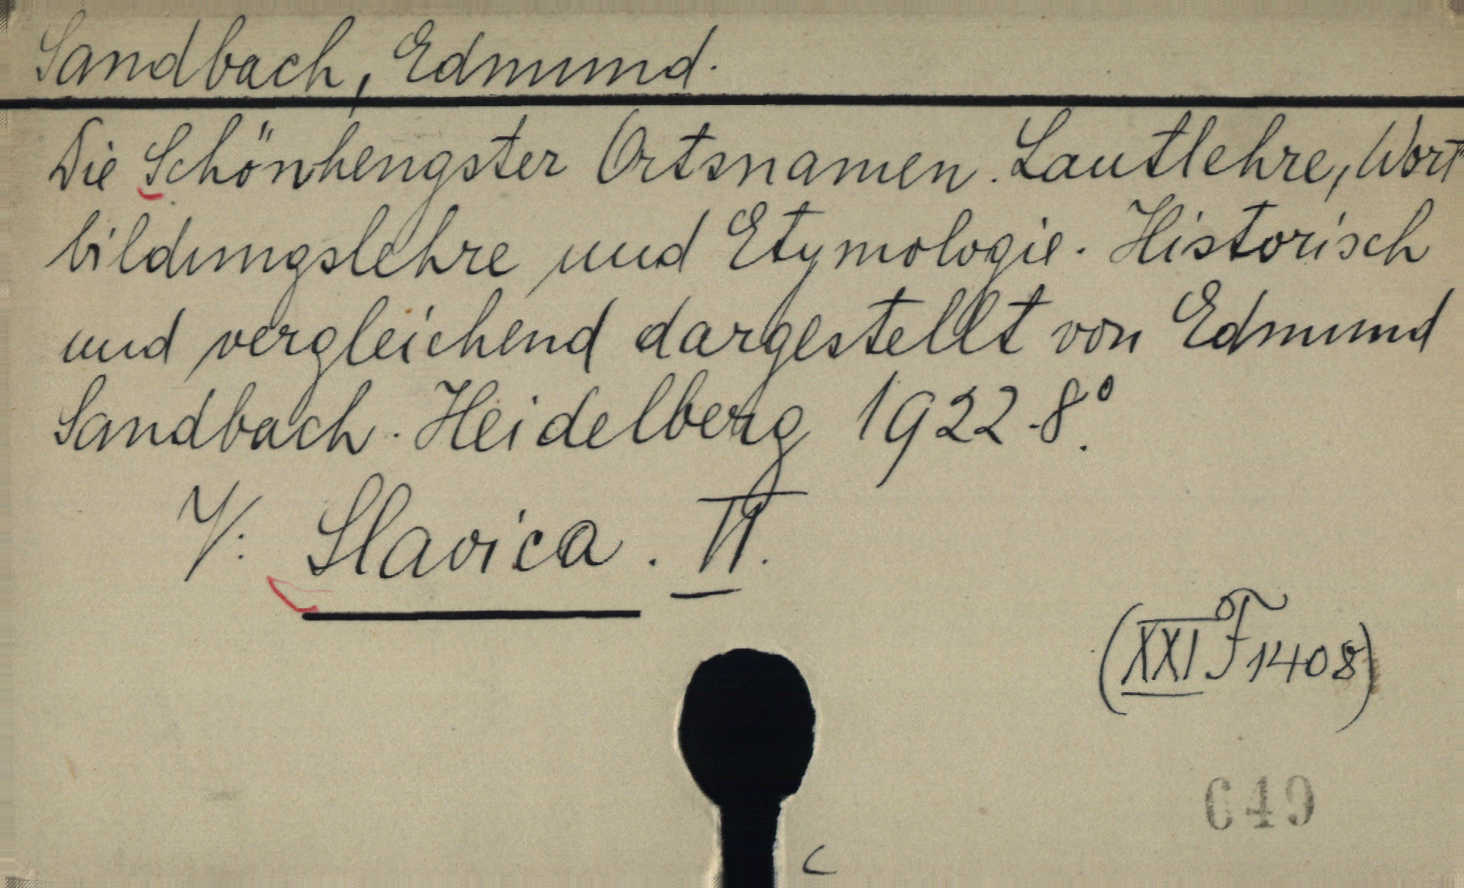 Sandbach, Edmund.
Die Schönhengster Ortsnamen. Lautlehre, Wort
bildungslehre und Etymologie. Historisch
und vergleichend dargestellt von Edmund
Sandbach. Heidelberg 1922. 8º.
V: Slavica. VI.
(XXI F 1408)
649